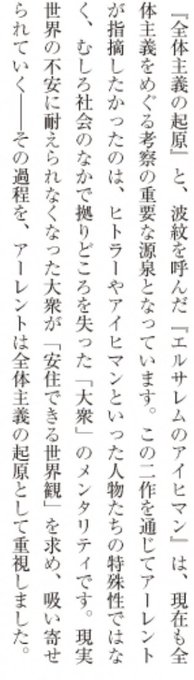 『全体主義の起原』と、波紋を呼んだ『エルサレムのアイヒマン』は、現在も全
体主義をめぐる考察の重要な源泉となっています。この二作を通じてアーレント
が指摘したかったのは、ヒトラーやアイヒマンといった人物たちの特殊性ではな
く、むしろ社会のなかで拠りどころを失った「大衆」のメンタリティです。現実
世界の不安に耐えられなくなった大衆が「安住できる世界観」を求め、吸い寄せ
られていく──その過程を、アーレントは全体主義の起原として重視しました。